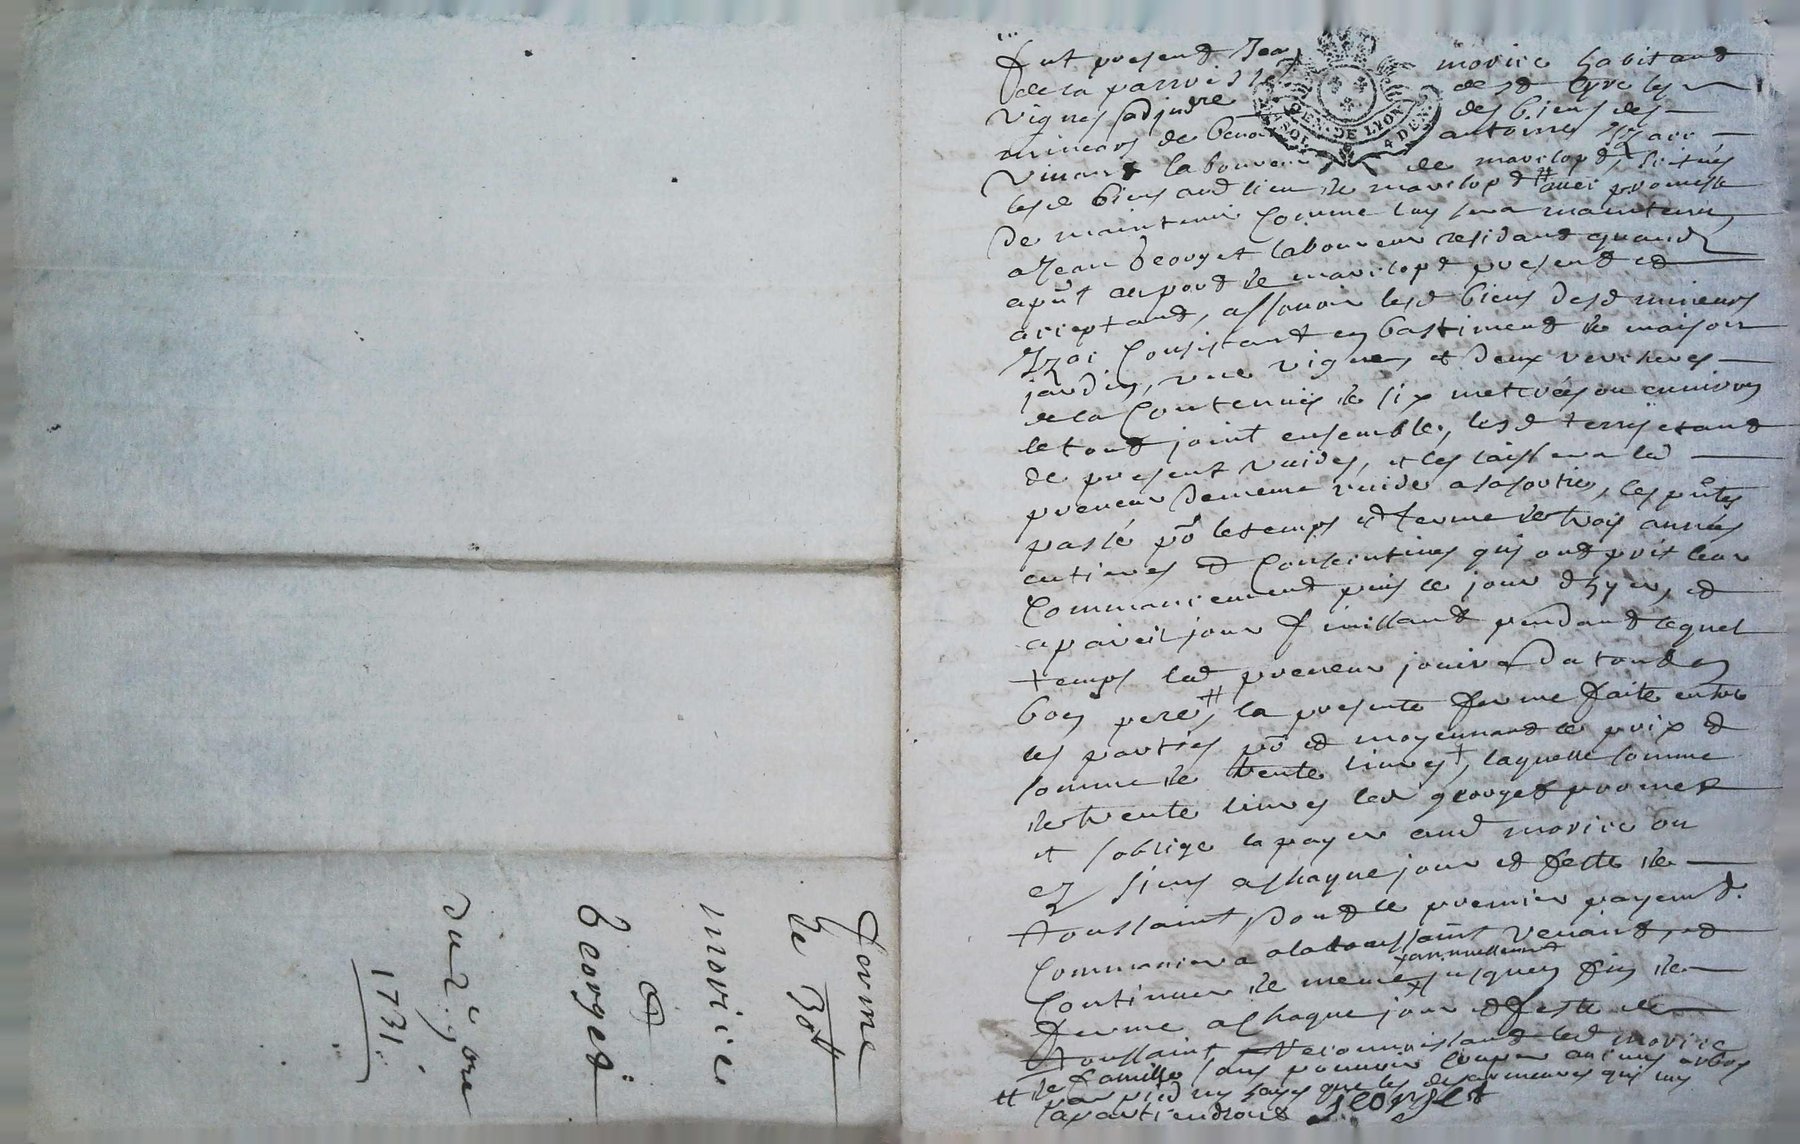 fut present Jean morice habitant
de la parroisse de st Cyre les
vignes adjudre des biens des
mineurs de benoit antoine Izaac
vivant laboureur de marclopt, situés
lesd biens aud lieu de marclopt # avec promesse
de maintenir comme luy sera maintenu
a Jean georget laboureur residant quand
apñt au port de marclopt present et
acceptant, assavoir lesd biens desd mineurs
Izac consistant en bastiment de maison
jardin, une vigne, et deux vercheres
de la contenuë de six metrées ou environ
le tout joint ensemble, lesd terres etant
de present vuides, et les laissera led
preneur de meme vuide a sa sortie, les pñtes
passé pō le temps et terme de trois années
entieres et consecutives qui ont prit leur
commancement puis le jour d'hyer, et
a pareil jour finissant pendant lequel
temps led preneur jouira du tout en
bon pere #, la presente ferme faite entre
les parties pō et moyennant le prix et
somme de trente livres +, laquelle somme
de trente livres led georget promet
et s'oblige la payer aud morice ou
ez siens a chaque jour et feste de
toussaint, dont le premier payemt.
commancera a la toussaint venant, et
annuellement
continuer de meme jusques fin de
ferme a chaque jour et feste de
toussaint, reconnoissant led morice
# de famille sans pouvoir couper aucuns arbres
par pied ny hayes que les
apartiendront georget
ferme
de 30#
morice
a
georget
du 2e 9bre
1731.